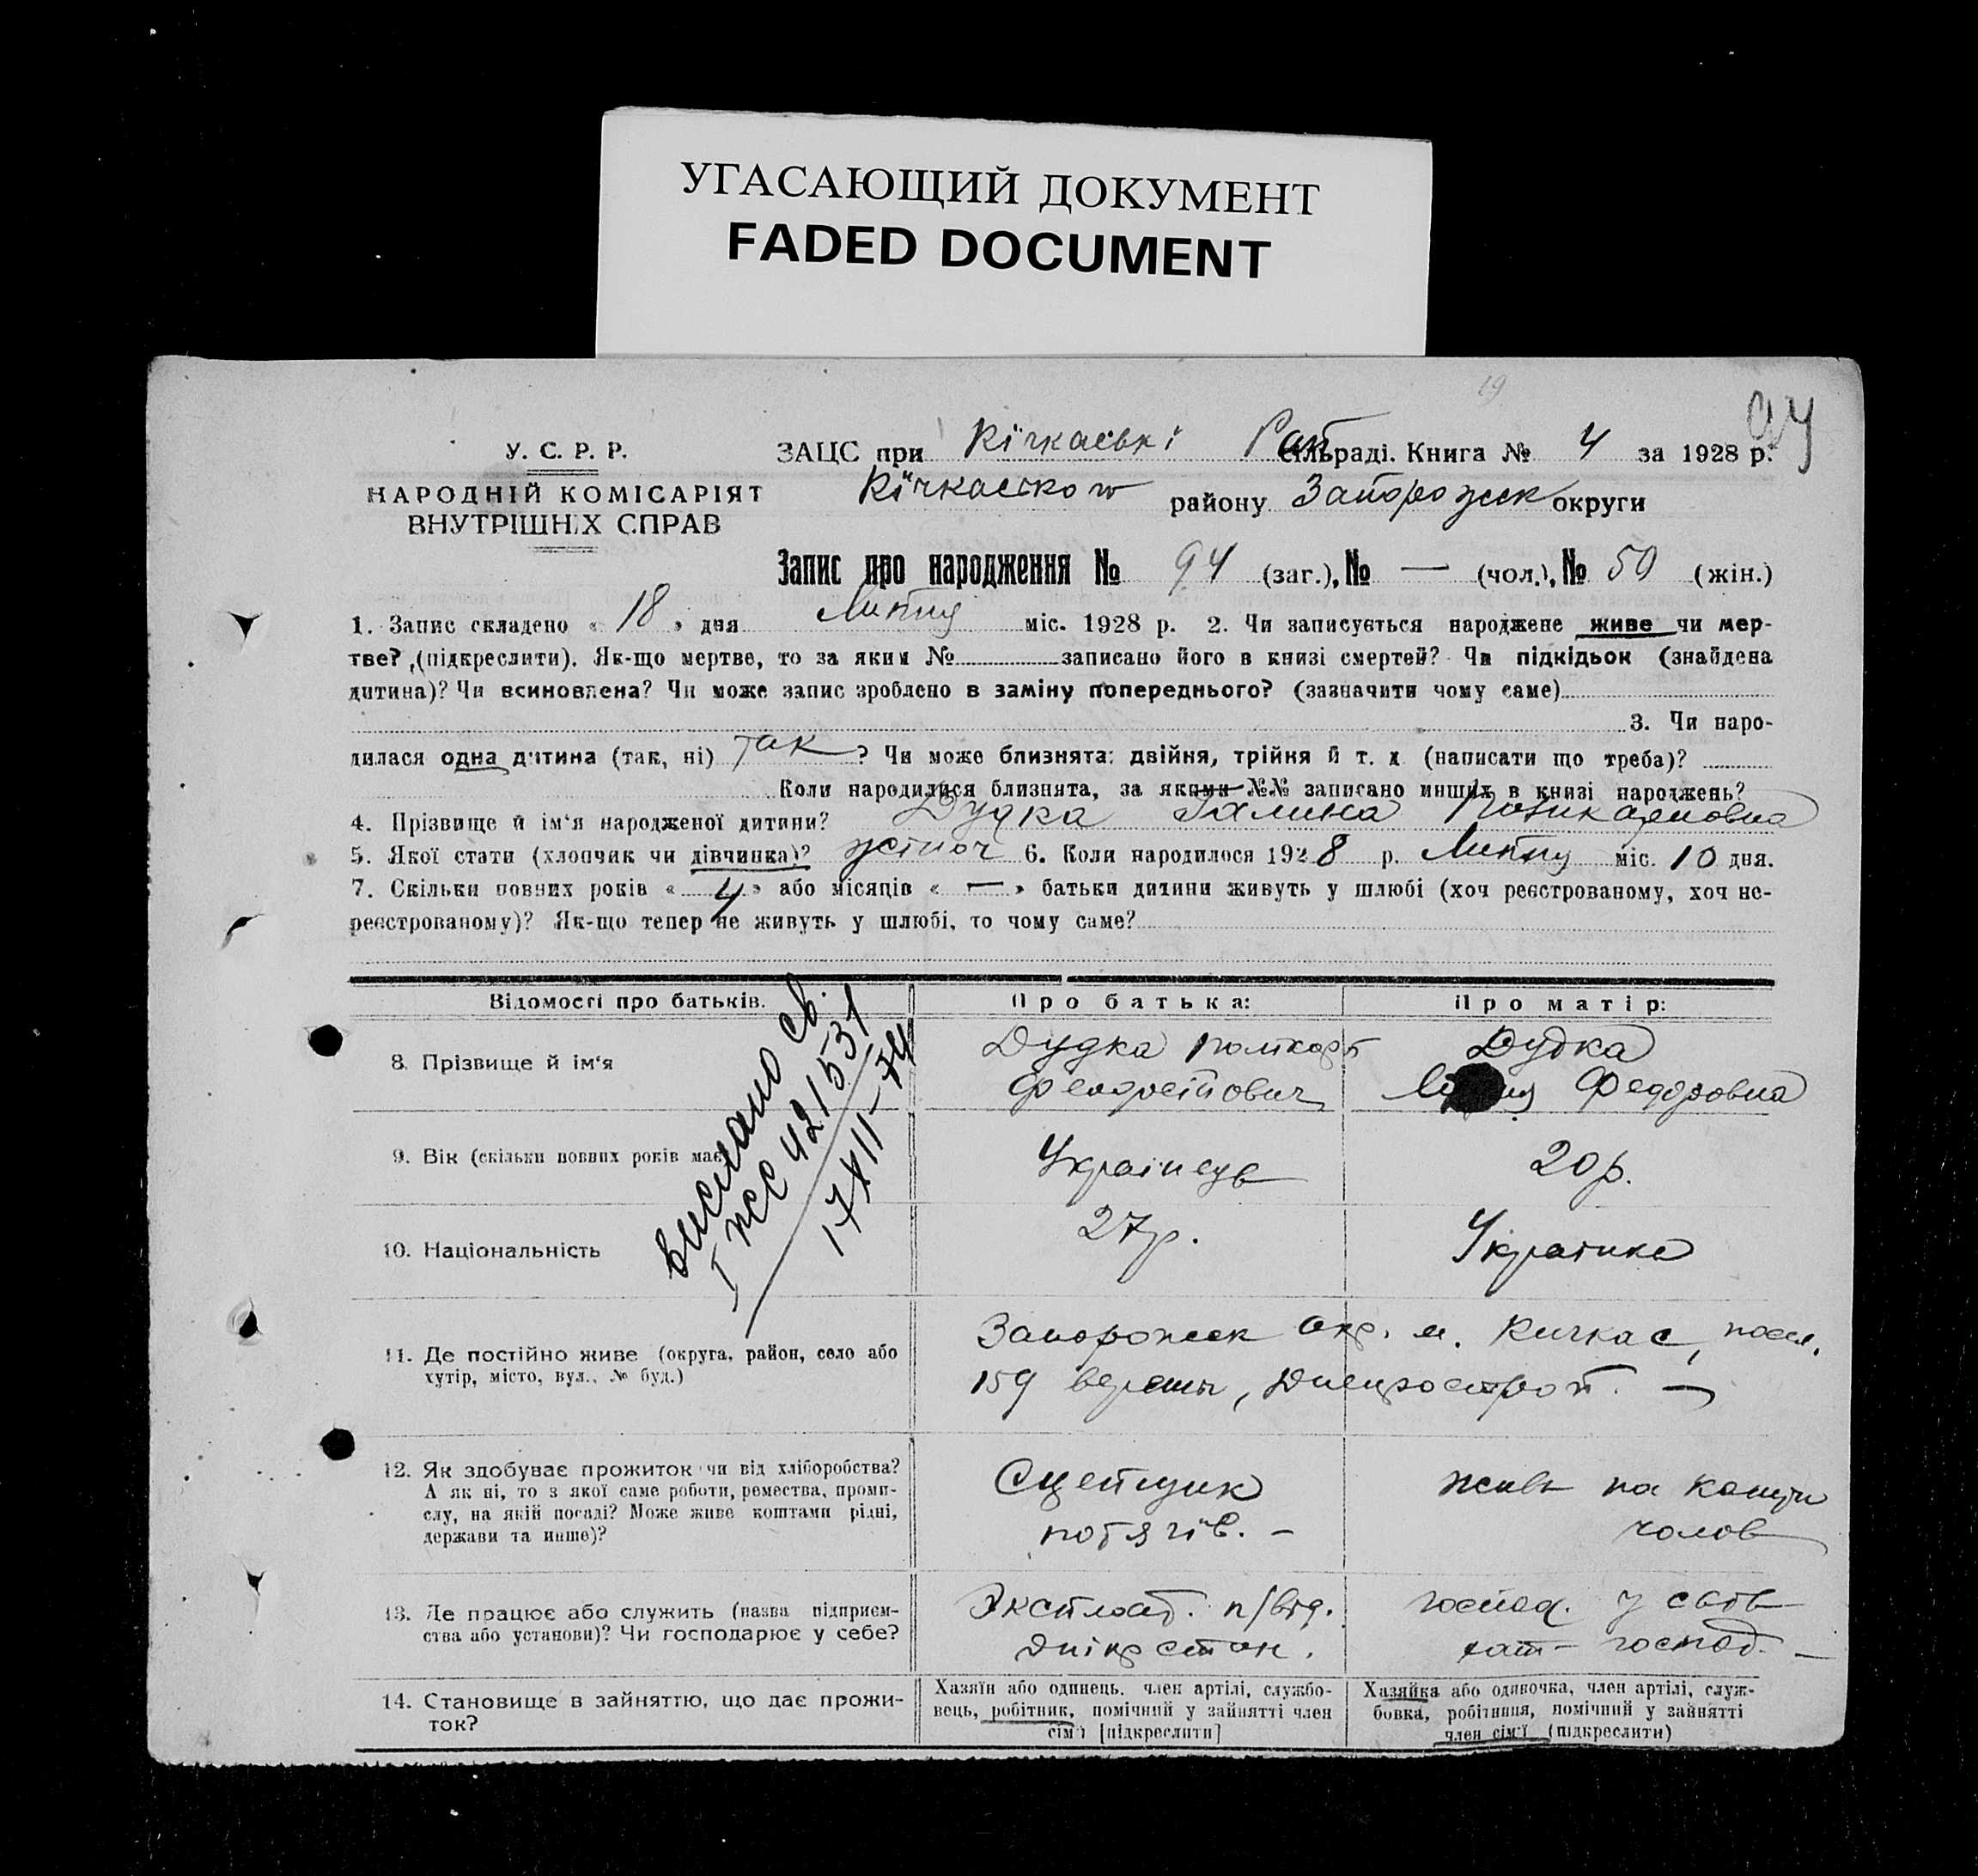 УГАСАЮЩИЙ ДОКУМЕНТ
FADED DOCUMENT
19
94
У. С. Р. Р.
НАРОДНІЙ КОМІСАРІЯТ
ВНУТРІШНІХ СПРАВ
ЗАЦС при Кічкаські Рай сільраді. Книга № 4 за 1928 р.
району Запорожск округи
Запис про народження № 94 (заг.), № — (чол.), № 50 (жін.)
1. Запис складено « 18 » дня Липня міс. 1928 р. 2. Чи записується народжене живе чи мер-
тве? (підкреслити). Як-що мертве, то за яким № записано його в книзі смертей? Чи підкідьок (знайдена
дитина)? Чи всиновлена? Чи може запис зроблено в заміну попереднього? (зазначити чому саме)
3. Чи наро-
дилася одна дитина (так, ні) так ? Чи може близнята: двійня, трійня й т. д. (написати що треба)?
Коли народилися близнята, за якими №№ записано инших в книзі народжень?
4. Прізвище й ім'я народженої дитини? Дудка Галина
5. Якої стати (хлопчик чи дівчинка)? жіноч 6. Коли народилося 1928 р. Липня міс. 10 дня.
7. Скільки повних років « 4 » або місяців « — » батьки дитини живуть у шлюбі (хоч реєстрованому, хоч не-
реєстрованому)? Як-що тепер не живуть у шлюбі, то чому саме?
Відомості про батьків.
Про батька:
Про матір:
8. Прізвище й ім'я
Дудка
Дудка
Федоровна
9. Вік (скільки повних років має
Українець
20 р.
10. Національність
27 р.
Українка
вислано св.
ЖС 421531
17 XII-74
11. Де постійно живе (округа, район, село або
хутір, місто, вул., № буд.)
Запорожск Окр. м. Кичкас, посел.
159 версты, Днепрострой. —
12. Як здобуває прожиток чи від хліборобства?
А як ні, то з якої саме роботи, ремества, проми-
слу, на якій посаді? Може живе коштами рідні,
держави та инше)?
Сцепщик
потягів. —
живе на кошти
чолов
13. Де працює або служить (назва підприєм-
ства або установи)? Чи господарює у себе?
Эксплоат. п/від.
госпад. у своїв
хат — господ. —
14. Становище в зайняттю, що дає прожи-
ток?
Хазяїн або одинець, член артілі, службо-
вець, робітник, помічний у зайнятті член
сім'ї [підкреслити]
Хазяйка або одиночка, член артілі, служ-
бовка, робітниця, помічний у зайнятті
член сім'ї (підкреслити)